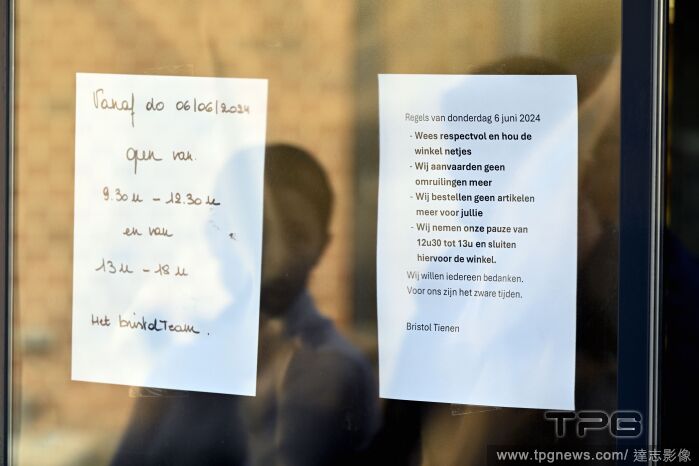 Vanaf do 06/06/2024
open van
9.30u - 12.30u
en van
13u - 18u
Het bristolTeam.
Regels van donderdag 6 juni 2024
- Wees respectvol en hou de
winkel netjes
- Wij aanvaarden geen
omruilingen meer
- Wij bestellen geen artikelen
meer voor jullie
- Wij nemen onze pauze van
12u30 tot 13u en sluiten
hiervoor de winkel.
Wij willen iedereen bedanken.
Voor ons zijn het zware tijden.
Bristol Tienen
TPG
www.tpgnews.com/ 達志影像